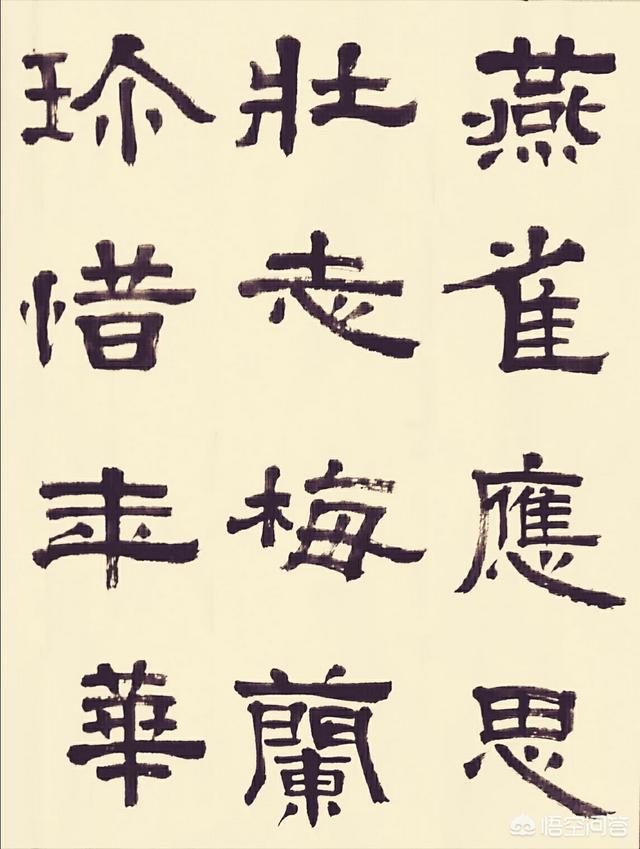 燕雀應思
壯志梅蘭
珍惜年華
悟空问答